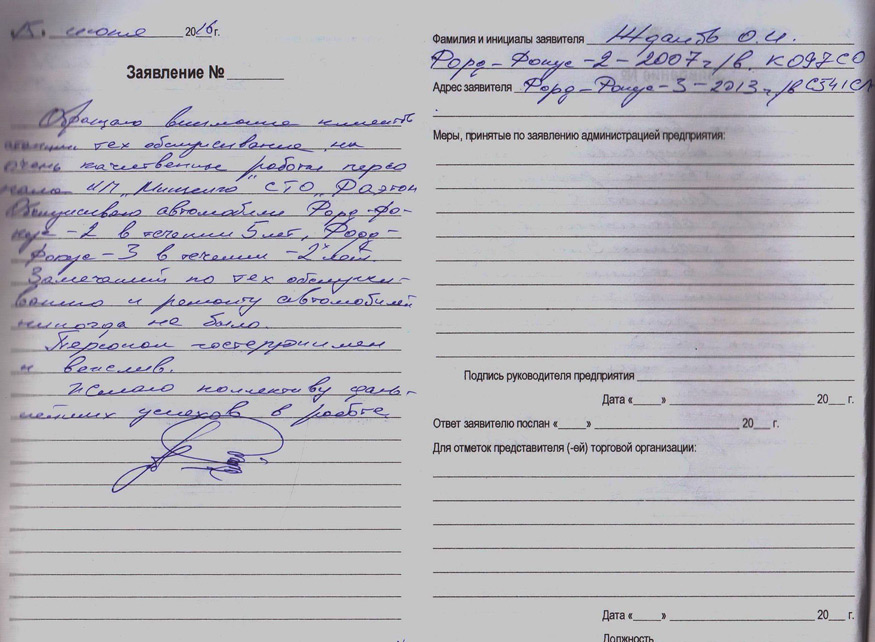 15. июня 2016 г.
Заявление №
Обращаю внимание клиентов
тех обслуживание на
очень качественные работы персо
нала ИП „Мищенко" СТО „Фаэтон
Обслуживаю автомобили Форд-Фо-
кус -2 в течении 5 лет, Форд-
Фокус -3 в течении -2х лет.
Замечаний по тех обслужи-
ванию и ремонту автомобилей
никогда не было.
Персонал гостеприимен
и вежлив.
Желаю коллективу даль-
нейших успехов в работе
Фамилия и инициалы заявителя О.И.
Форд-Фокус -2-2007 г/в. К097СО
Адрес заявителя Форд-Фокус-3-2013 г/в
Меры, принятые по заявлению администрацией предприятия:
Подпись руководителя предприятия
Дата «___» 20___ г.
Ответ заявителю послан «___» 20___ г.
Для отметок представителя (-ей) торговой организации:
Дата «___» 20___ г.
Должность